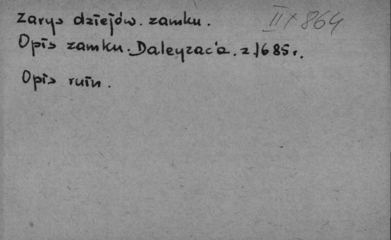 Zarys dziejów. zamku. II/864
Opis zamku. Daleyrac'a. z 1685 r.
Opis ruin.